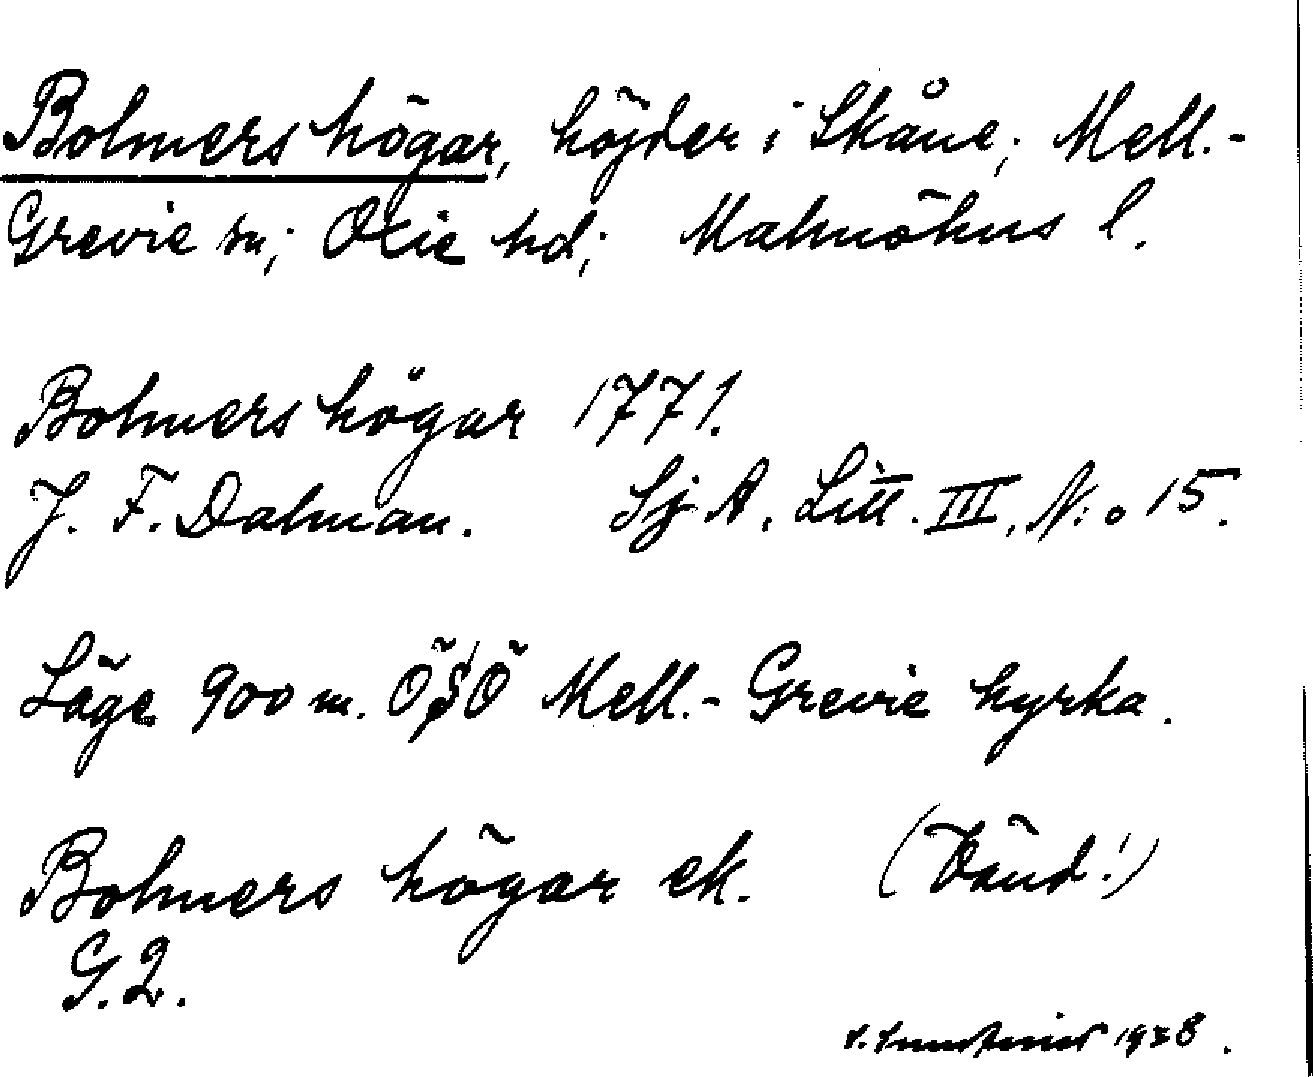 Bolmers högar, höjder i Skåne; Mell.-
Grevie sn; Oxie hd; Malmöhus l.
Bolmers högar 1771.
J. F. Dalman. Sj. A. Litt. III, N:o 15.
Läge 900 m. ÖSÖ Mell.-Grevie kyrka.
Bolmers högar ek. (Vänd!)
G.2.
1928.